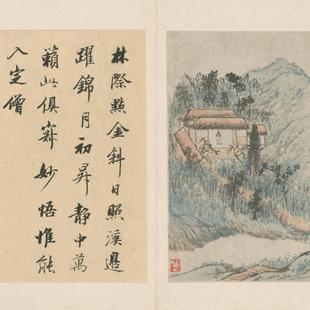 林際點金斜日照溪邊
躍錦月初昇静中萬
籟此俱寂妙悟惟能
入定僧